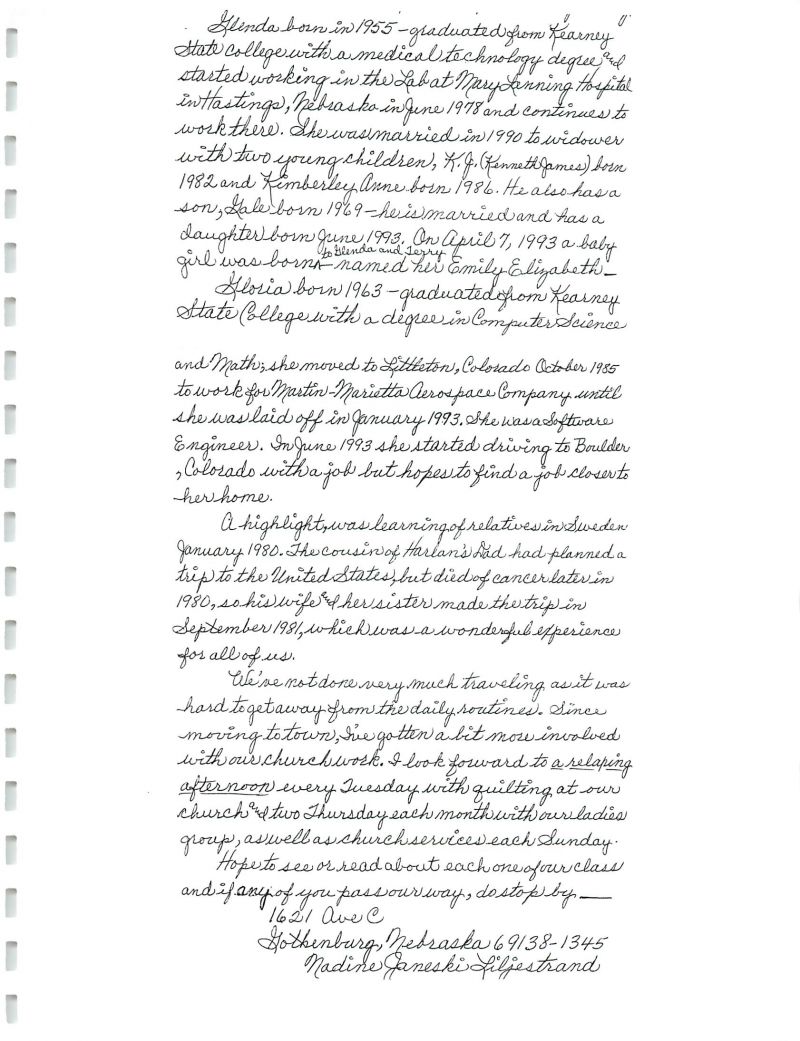 Glenda born in 1955 - graduated from Kearney
State College with a medical technology degree and
started working in the Lab at Mary Lanning Hospital
in Hastings, Nebraska in June 1978 and continues to
work there. She was married in 1990 to widower
with two young children, K.J. (Kenneth James) born
1982 and Kimberley Anne born 1986. He also has a
son, Gale born 1969 - he is married and has a
daughter born June 1993. On April 7, 1993 a baby
girl was born to Glenda and Terry - named her Emily Elizabeth -
Gloria born 1963 - graduated from Kearney
State College with a degree in Computer Science
and Math; she moved to Littleton, Colorado October 1985
to work for Martin-Marietta Aerospace Company until
she was laid off in January 1993. She was a Software
Engineer. In June 1993 she started driving to Boulder
, Colorado with a job but hopes to find a job closer to
her home.
A highlight, was learning of relatives in Sweden
January 1980. The cousin of Harlan's Dad had planned a
trip to the United States, but died of cancer later in
1980, so his wife and her sister made the trip in
September 1981, which was a wonderful experience
for all of us.
We've not done very much traveling, as it was
hard to get away from the daily routines. Since
moving to town, I've gotten a bit more involved
with our church work. I look forward to a relaxing
afternoon every Tuesday with quilting at our
church and two Thursday each month with our ladies
group, as well as church services each Sunday.
Hope to see or read about each one of our class
and if any of you pass our way, do stop by —
1621 Ave C
Gothenburg, Nebraska 69138-1345
Nadine Janeski Liljestrand